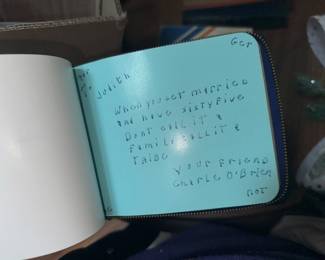 Get
To Judith
When you get married
and have sixty five
Dont call it a
family call it a
tribe
Your Friend
Charle O'Brien
not